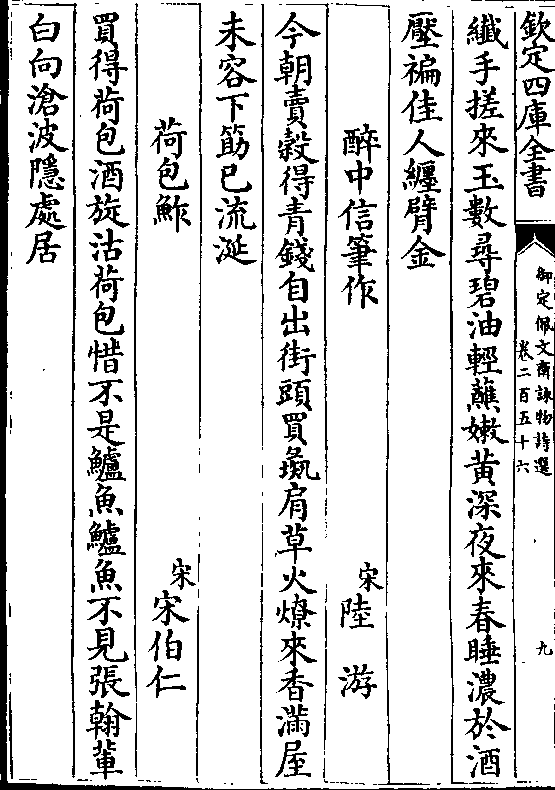 欽定四庫全書
御定佩文齋詠物詩選
卷二百五十六
九
纎手搓來玉數尋碧油輕蘸嫩黄深夜來春睡濃於酒
壓褊佳人纒臂金
醉中信筆作
宋陸游
今朝賣榖得青錢自出街頭買彘肩草火燎來香滿屋
未容下筯已流涎
荷包鮓
宋宋伯仁
買得荷包酒旋沽荷包惜不是鱸魚鱸魚不見張翰輩
白向滄波隱處居